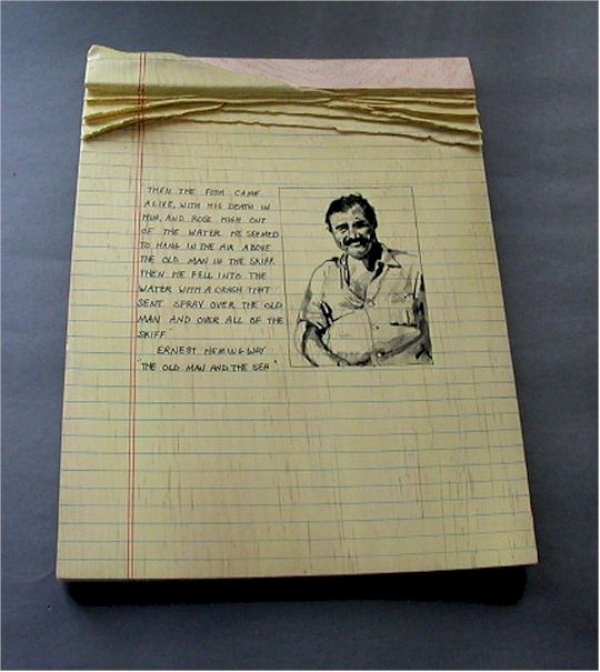 THEN THE FISH CAME
ALIVE, WITH HIS DEATH IN
HIM, AND ROSE HIGH OUT
OF THE WATER. HE SEEMED
TO HANG IN THE AIR ABOVE
THE OLD MAN IN THE SKIFF.
THEN HE FELL INTO THE
WATER WITH A CRASH THAT
SENT SPRAY OVER THE OLD
MAN AND OVER ALL OF THE
SKIFF
ERNEST HEMINGWAY
"THE OLD MAN AND THE SEA"